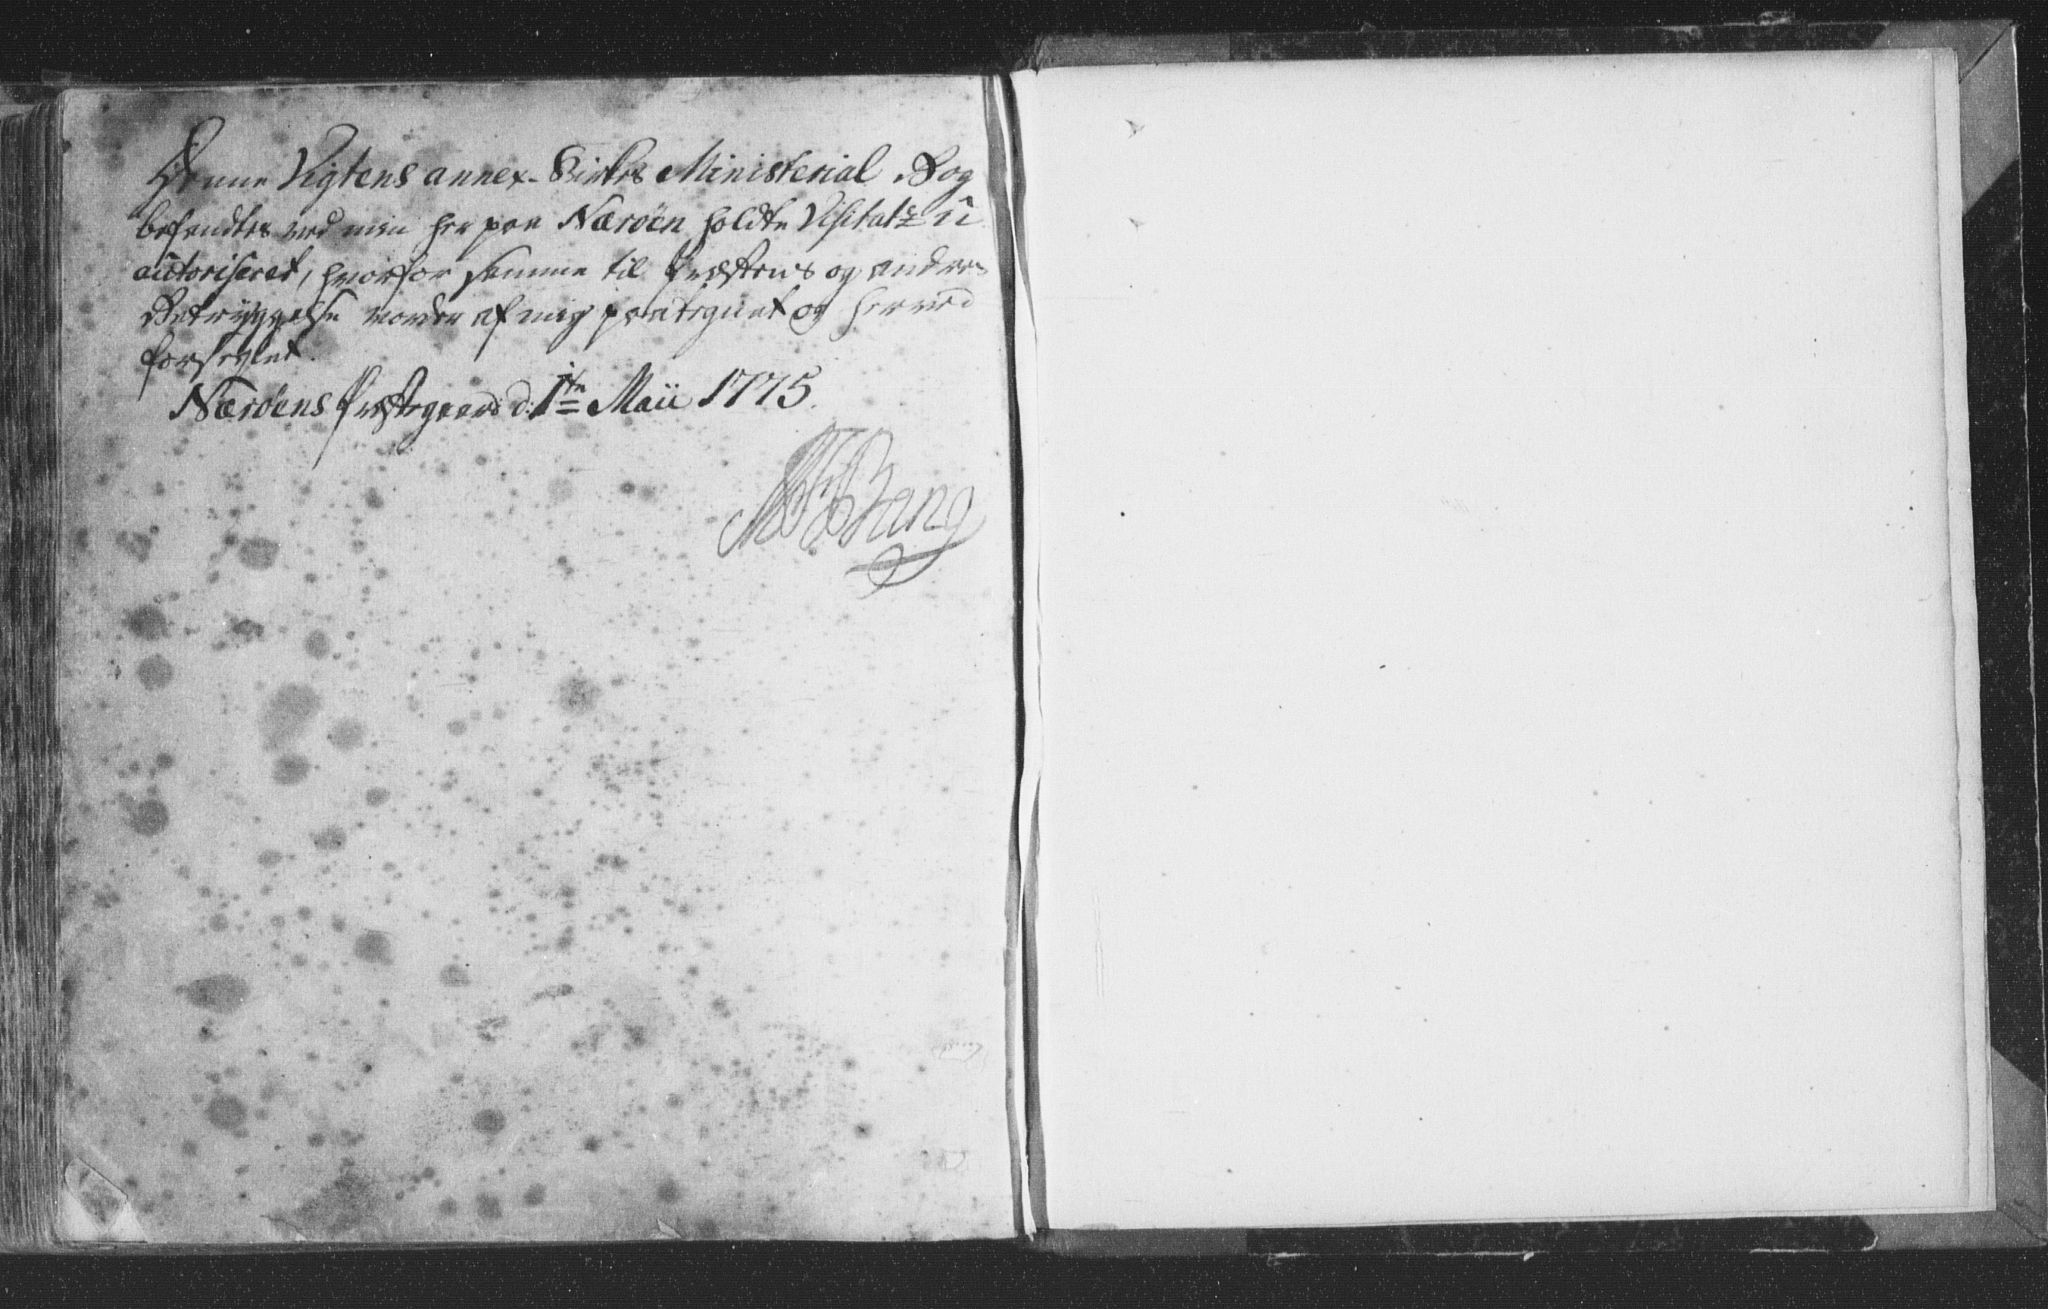 Denne Vigtens annex-Kirkes Ministerial Bog
befandtes ved min her paa Næröen holdte Visitatz ü
aütoriseret, hvorfor samme til Præstens og andres
Betryggelse vorder af mig paategnet og herved
forseglet.
Næröens Præstegaard d: 1te Maii 1775.
Bang